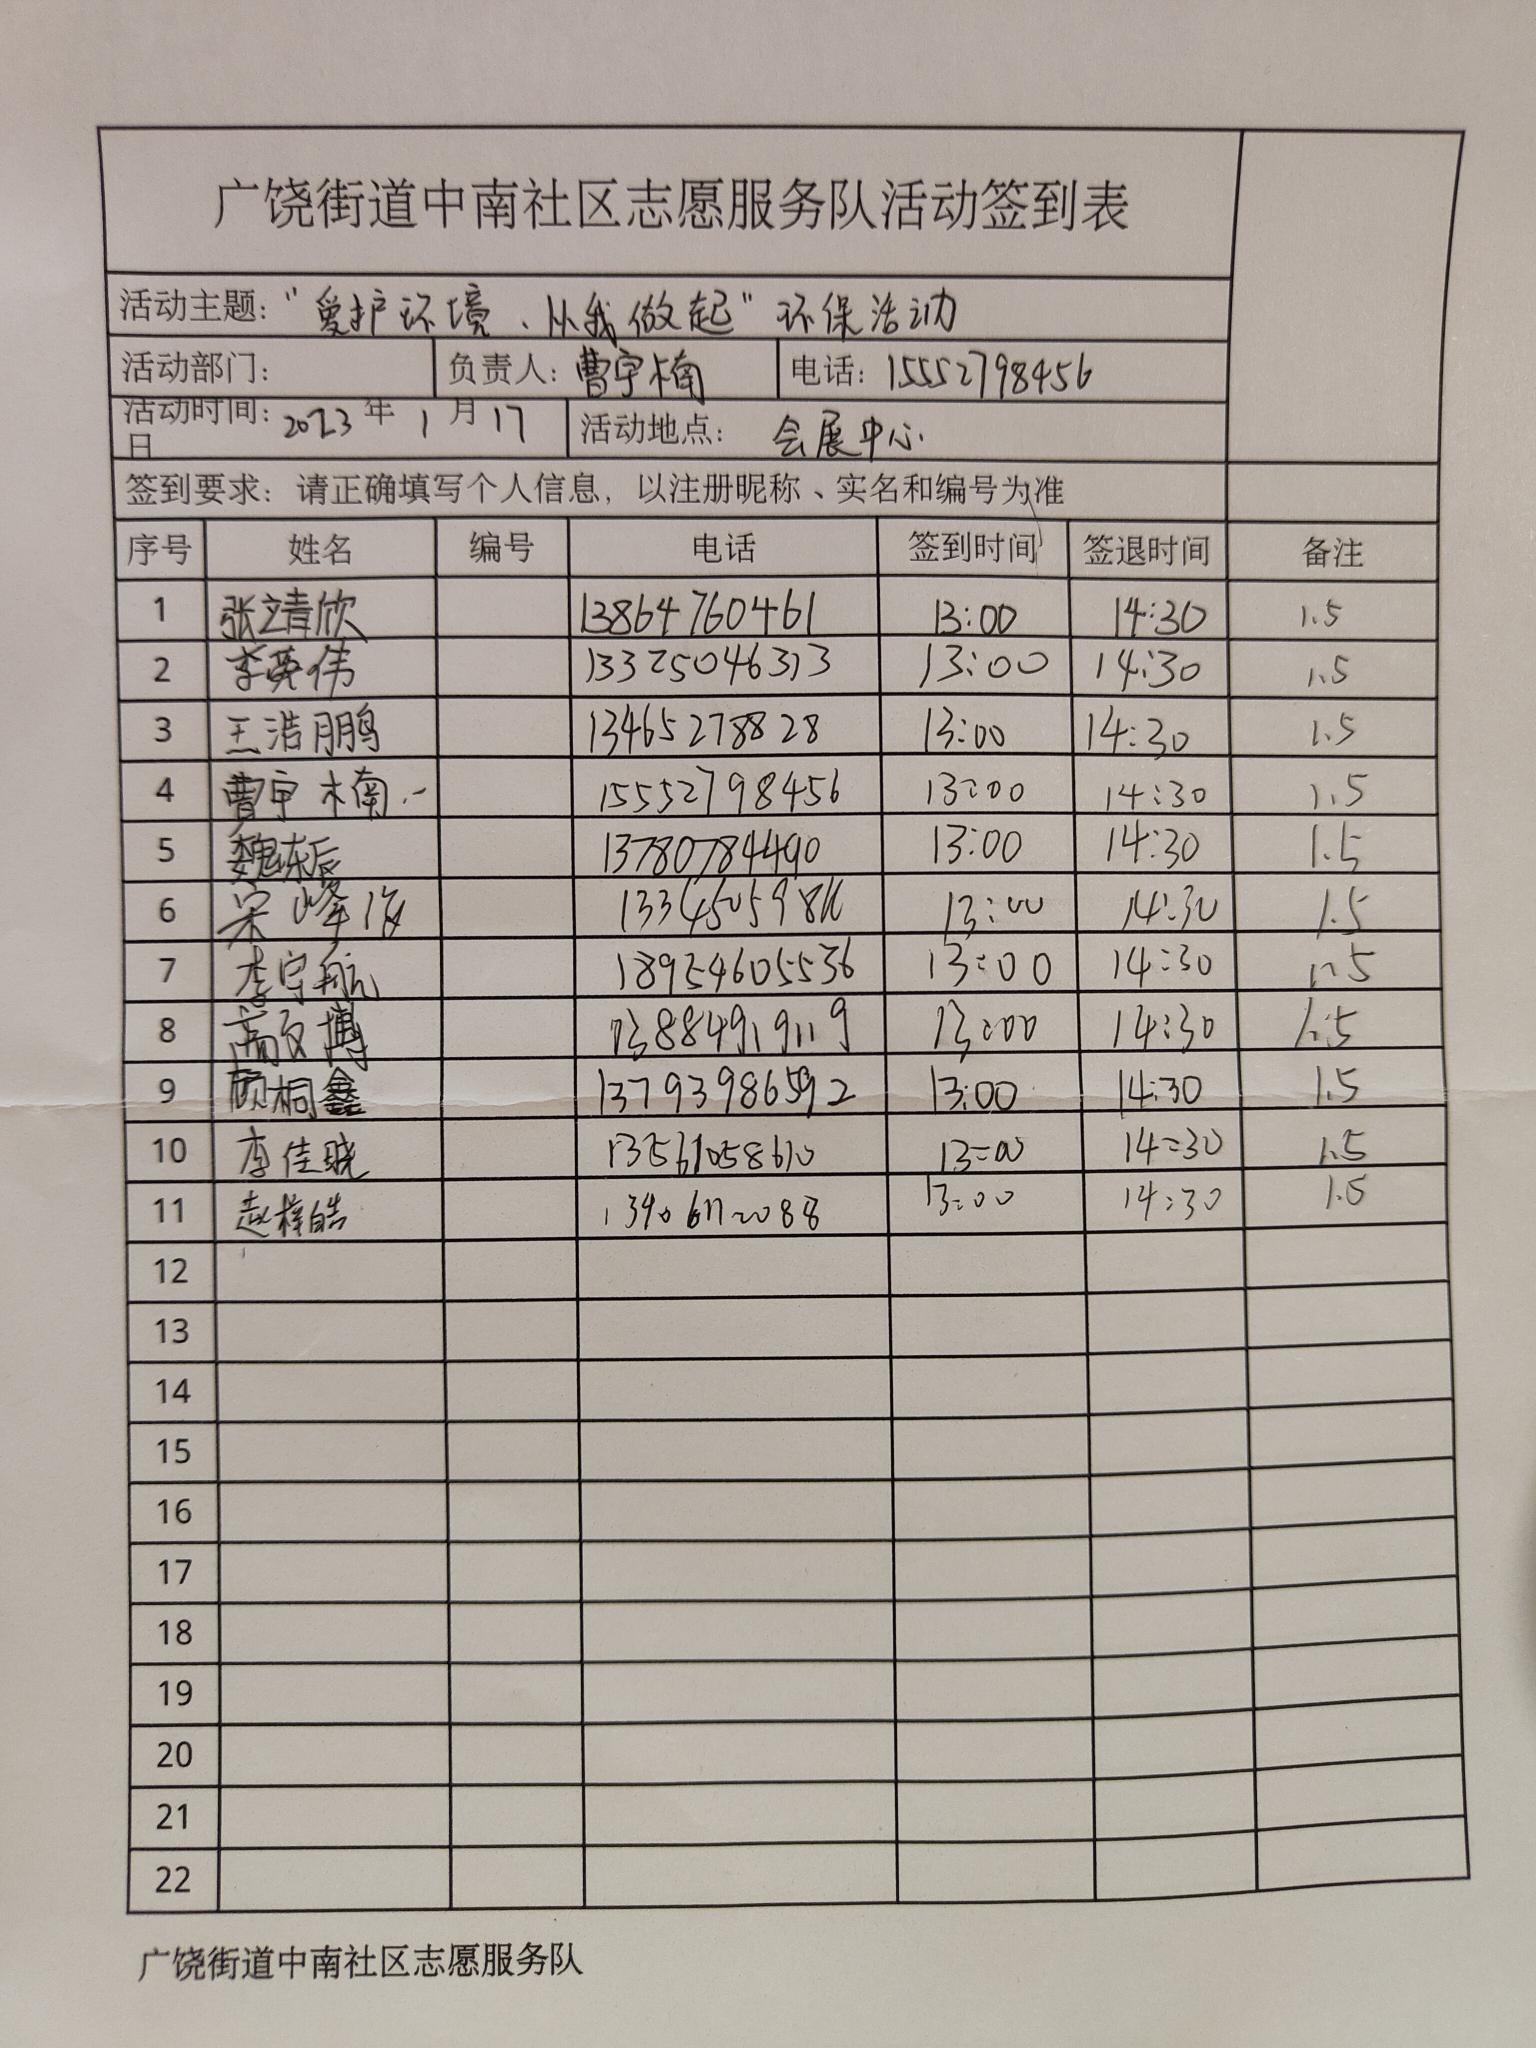 广饶街道中南社区志愿服务队活动签到表
活动主题：“爱护环境、从我做起”环保活动
活动部门： 负责人：曹宇楠 电话：15552798456
活动时间：2023年1月17日 活动地点：会展中心
签到要求：请正确填写个人信息，以注册昵称、实名和编号为准
序号 姓名 编号 电话 签到时间 签退时间 备注
1 张靖欣 13864760461 13:00 14:30 1.5
2 李英伟 13325046313 13:00 14:30 1.5
3 王浩鹏 13465278828 13:00 14:30 1.5
4 曹宇楠 15552798456 13:00 14:30 1.5
5 魏东辰 13780784490 13:00 14:30 1.5
6 宋峰 13:00 14:30 1.5
7 李宇航 18954605536 13:00 14:30 1.5
8 高文博 13884919119 13:00 14:30 1.5
9 顾桐鑫 13793986592 13:00 14:30 1.5
10 李佳晓 13561058610 13:00 14:30 1.5
11 赵梓皓 13:00 14:30 1.5
12
13
14
15
16
17
18
19
20
21
22
广饶街道中南社区志愿服务队